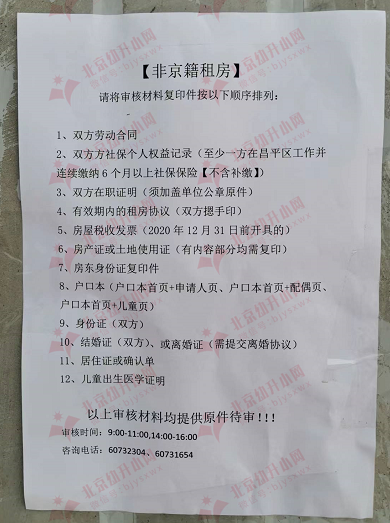 【非京籍租房】
请将审核材料复印件按以下顺序排列：
1、双方劳动合同
2、双方方社保个人权益记录（至少一方在昌平区工作并
连续缴纳6个月以上社保保险【不含补缴】）
3、双方在职证明（须加盖单位公章原件）
4、有效期内的租房协议（双方摁手印）
5、房屋税收发票（2020年12月31日前开具的）
6、房产证或土地使用证（有内容部分均需复印）
7、房东身份证复印件
8、户口本（户口本首页+申请人页、户口本首页+配偶页、
户口本首页+儿童页）
9、身份证（双方）
10、结婚证（双方）、或离婚证（需提交离婚协议）
11、居住证或确认单
12、儿童出生医学证明
以上审核材料均提供原件待审！！！
审核时间：9:00-11:00,14:00-16:00
咨询电话：60732304、60731654
北京幼升小网